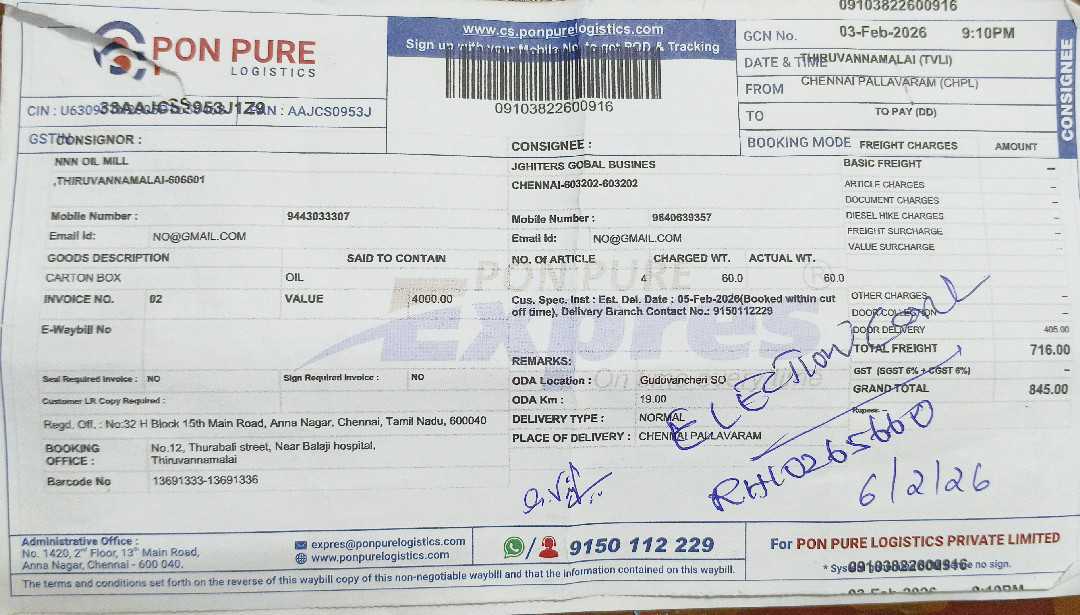 09103822600916
PON PURE
LOGISTICS
www.cs.ponpurelogistics.com
Sign up with your Mobile No. to get POD & Tracking
09103822600916
GCN No. 03-Feb-2026 9:10PM
DATE & TIME THIRUVANNAMALAI (TVLI)
FROM CHENNAI PALLAVARAM (CHPL)
TO TO PAY (DD)
BOOKING MODE
CONSIGNEE
CIN : U6309
33AAJCS5953J1Z9
: AAJCS0953J
GSTIN
CONSIGNOR :
NNN OIL MILL
,THIRUVANNAMALAI-606601
Mobile Number : 9443033307
Email Id: NO@GMAIL.COM
CONSIGNEE :
JGHITERS GOBAL BUSINES
CHENNAI-603202-603202
Mobile Number : 9840639357
Email Id: NO@GMAIL.COM
FREIGHT CHARGES AMOUNT
BASIC FREIGHT –
ARTICLE CHARGES –
DOCUMENT CHARGES –
DIESEL HIKE CHARGES –
FREIGHT SURCHARGE –
VALUE SURCHARGE –
OTHER CHARGES –
DOOR COLLECTION –
DOOR DELIVERY 405.00
TOTAL FREIGHT 716.00
GST (SGST 6% + CGST 6%) –
GRAND TOTAL 845.00
Rupees: –
GOODS DESCRIPTION SAID TO CONTAIN
CARTON BOX OIL
INVOICE NO. 02 VALUE 4000.00
E-Waybill No
Seal Required Invoice : NO Sign Required Invoice : NO
Customer LR Copy Required :
NO. Of ARTICLE CHARGED WT. ACTUAL WT.
4 60.0 60.0
Cus. Spec. Inst : Est. Del. Date : 05-Feb-2026(Booked within cut
off time), Delivery Branch Contact No.: 9150112229
REMARKS:
ODA Location : Guduvancheri SO
ODA Km : 19.00
DELIVERY TYPE : NORMAL
PLACE OF DELIVERY : CHENNAI PALLAVARAM
PON PURE ®
Express
Regd. Off. : No:32 H Block 15th Main Road, Anna Nagar, Chennai, Tamil Nadu, 600040
BOOKING OFFICE : No.12, Thurabali street, Near Balaji hospital,
Thiruvannamalai
Barcode No 13691333-13691336
ELECTION
RH10265660
6/2/26
Administrative Office :
No. 1420, 2nd Floor, 13th Main Road,
Anna Nagar, Chennai - 600 040.
expres@ponpurelogistics.com
www.ponpurelogistics.com
9150 112 229
For PON PURE LOGISTICS PRIVATE LIMITED
09103822600916
no sign.
The terms and conditions set forth on the reverse of this waybill copy of this non-negotiable waybill and that the information contained on this waybill.
03-Feb-2026 9:10PM